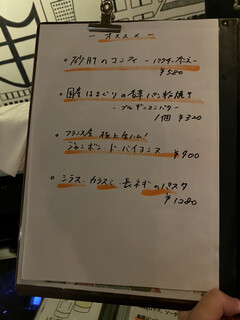 - オススメ -
・砂肝のコンフィ
¥580
・国産はまぐりの香草パン粉焼き
- ブルギニョンバター -
1個 ¥320
・フランス産 極上生ハム!
ジャンボン ド バイヨンヌ
¥900
・シラス カラスミ 長ネギのパスタ
¥1280